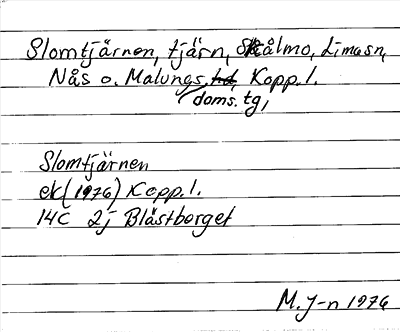 Slomtjärnen, tjärn, Skålmo, Limasn,
Nås o. Malungs hd, Kopp. l.
doms. tg,
Slomtjärnen
ek (1976) Kopp. l.
14C 2j Blåstberget
M. J-n 1976